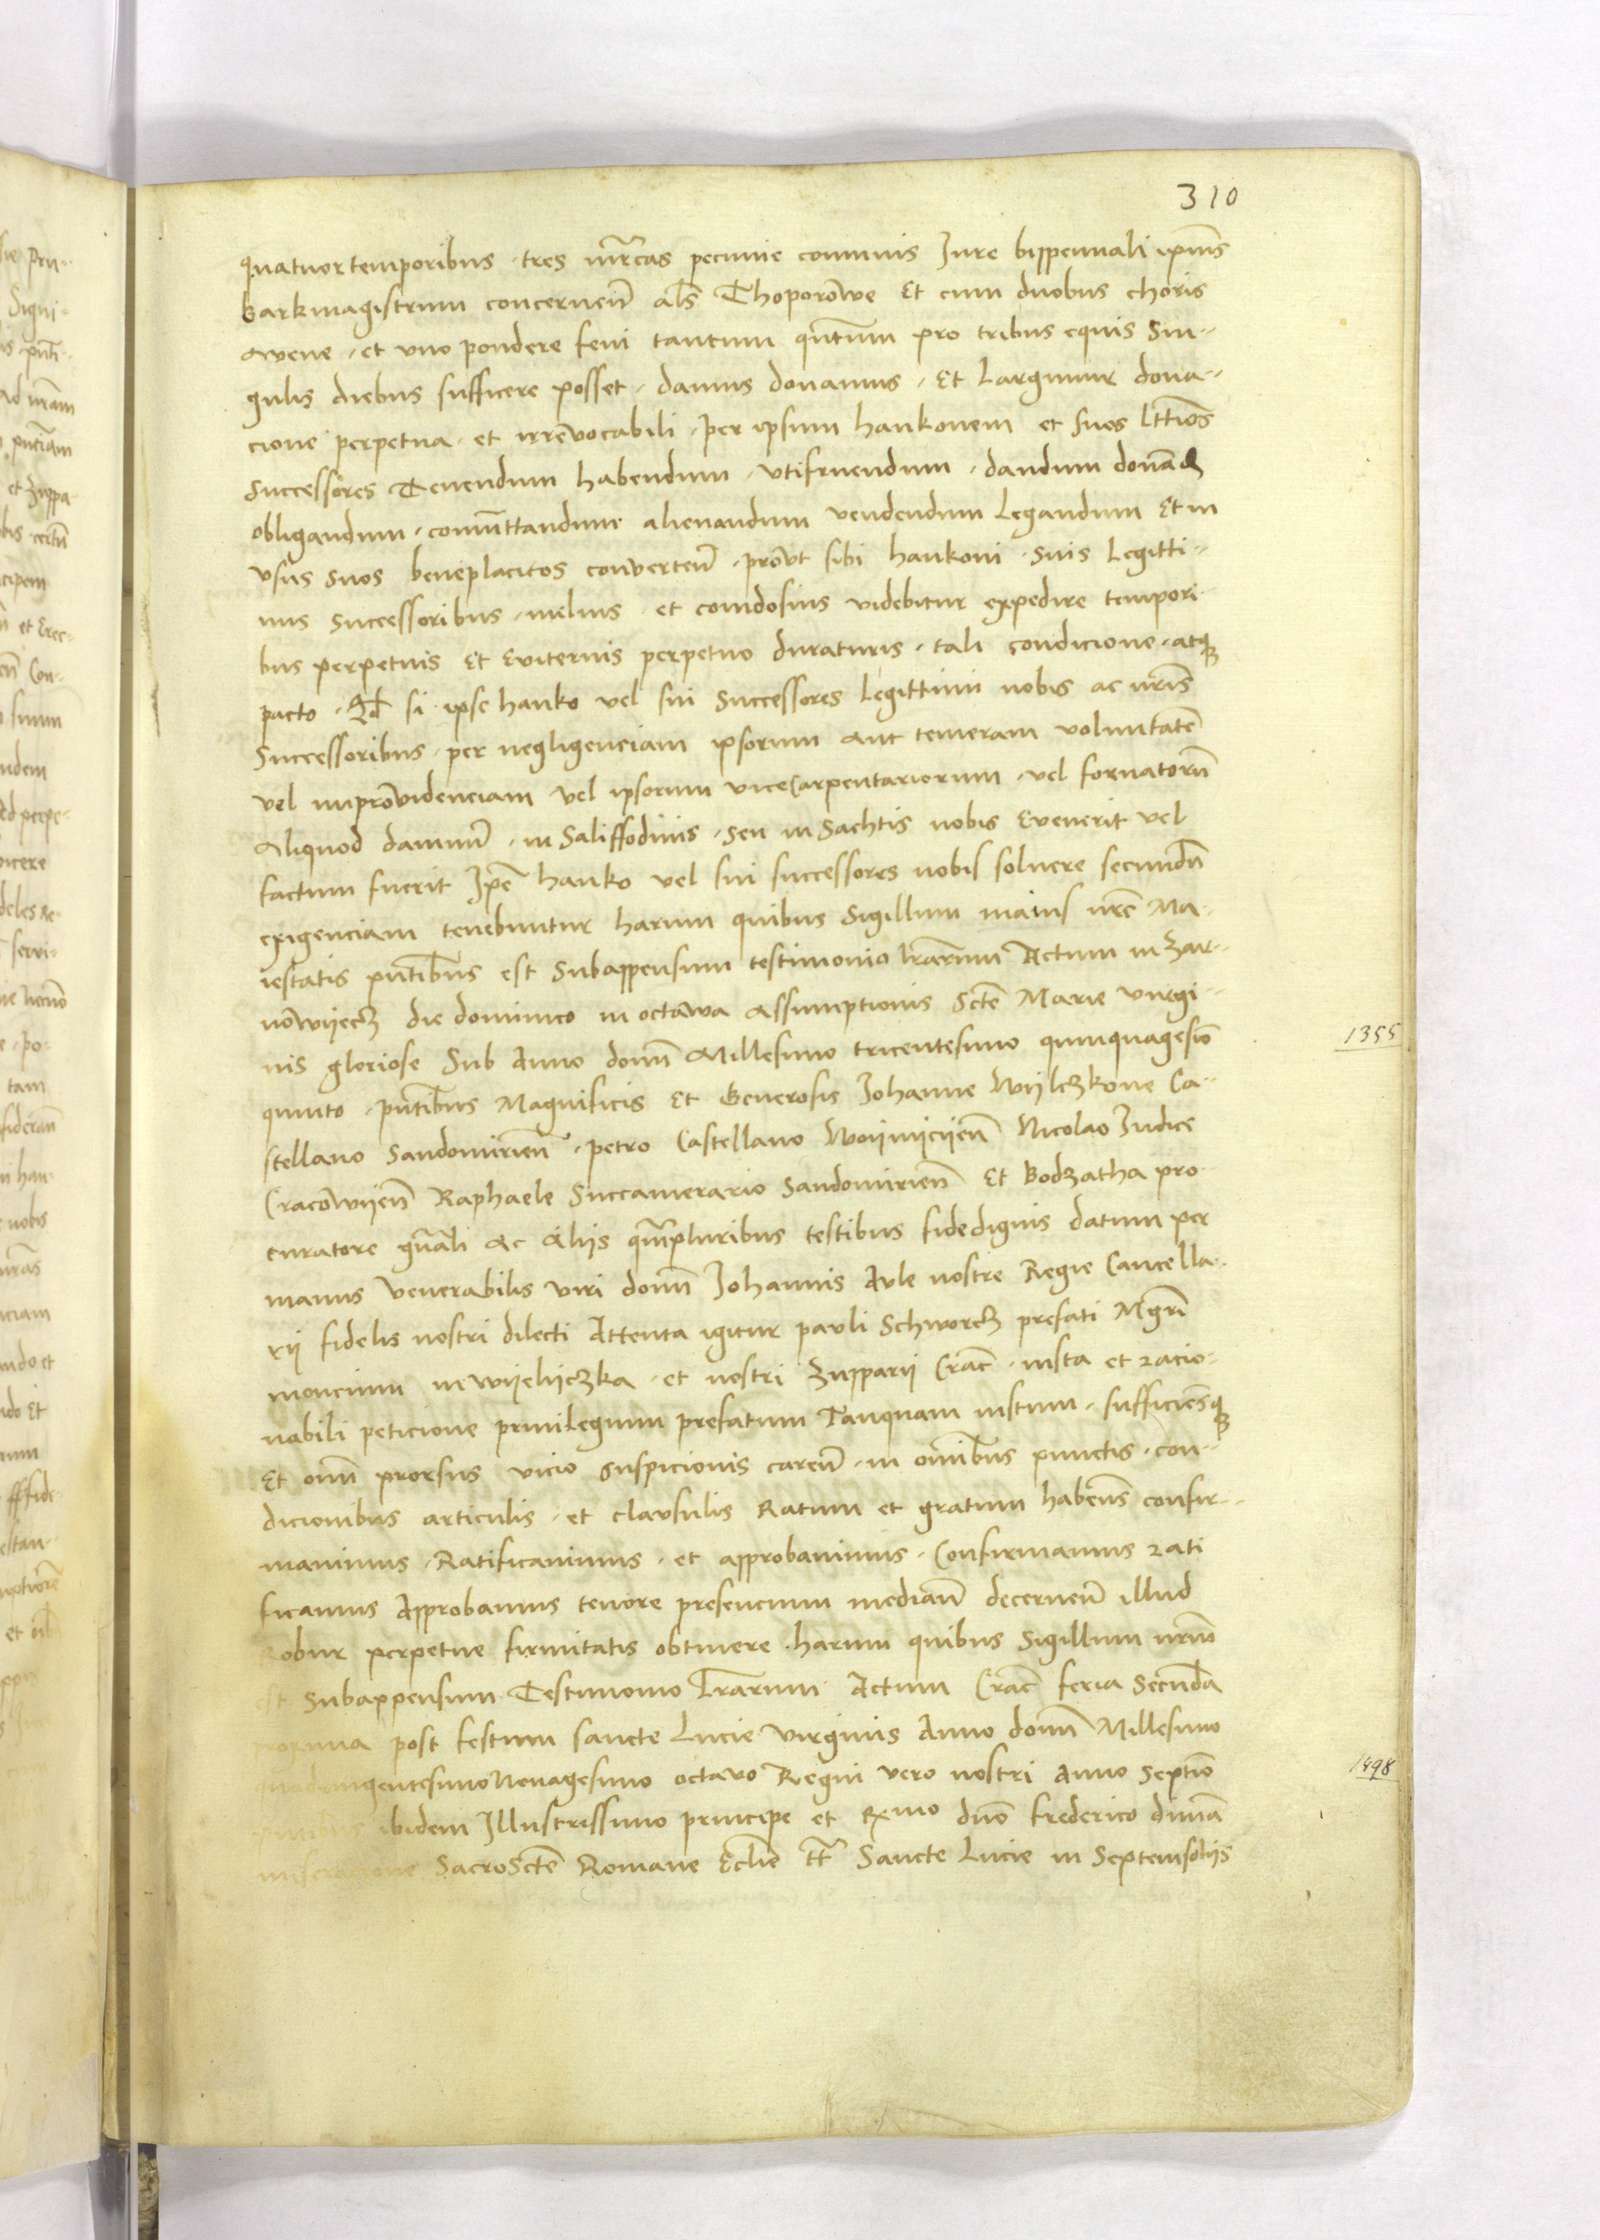 310
quatuortemporibus · tres mr̃cas pecunie comunis Jure bippennali ip̃ius
Barkmagistrum concerneñ als̃ Thoporowe Et cum duobus choris
avene · et uno pondere feni tantum qñtum pro tribus equis Sin-
gulis diebus sufficere posset · damus donamus · Et Largimur dona-
cione perpetua · et irrevocabili · per ipsum hankonem et suos lttios̃
Successores Tenendum habendum · utifruendum · dandum donan̄d
obligandum · comittandum alienandum vendendum Legandum Et in
usus suos beneplacitos converteñ · prout sibi hankoni · suis Legitti-
mis Successoribus · melius · et comodosius videbitur expedire tempori-
bus perpetuis Et Eviternis perpetuo duraturis · tali condicione · atq3
pacto · Qd̃ si ipse hanko vel sui Successores Legittimi nobis ac nr̃is
Successoribus · per negligenciam ipsorum aut temeram voluntatẽ
vel improvidenciam vel ipsorum viceCarpentariorum · vel fornatorũ
Aliquod damnũ · in Saliffodinis · seu in Sachtis nobis Evenerit vel
factum fuerit Ip̃e hanko vel sui successores nobis solvere secundũ
exigenciam tenebuntur harum quibus Sigillum maius nr̃e Ma-
iestatis pñtibus est Subappensum testimonio lr̃arum Actum in Zar-
nowyecz die dominico in octava Assumptionis Sctẽ Marie virgi-
nis gloriose Sub Anno domĩ Millesimo tricentesimo quinquagesiõ
1355
quinto · pñtibus Magnificis Et Generosis Johanne Wylczkone Ca-
stellano Sandomirieñ · petro Castellano Woyniciieñ Nicolao Judice
Cracowieñ Raphaele Succamerario Sandomirieñ Et Bodzatha pro
curatore gñali Ac Aliis qm̃pluribus testibus fidedignis datum per
manus venerabilis viri domĩ Johannis Aule nostre Regie Cancella-
rii fidelis nostri dilecti Attenta igitur pauli Schworcz prefati Mgr̃i
moncium in wyelyczka · et nostri Zupparii Crac̃ · iusta et racio-
nabili peticione privilegium prefatum Tanquam iustum · sufficiensq3
Et omĩ prorsus vicio suspicionis careñ · in omĩbus punctis · con-
dicionibus articulis · et clausulis Ratum et gratum habens̃ confir-
mavimus · Ratificavimus · et approbavimus · Confirmamus rati
ficamus Approbamus tenore presencium mediañ decerneñ illud
Robur perpetue firmitatis obtinere · harum quibus Sigillum nr̃um
est Subappensum Testimonio Lr̃arum Actum Crac̃ feria Secunda
proxima post festum sancte Lucie virginis Anno domĩ Millesimo
quadringentesimo Nonagesimo octavo Regni vero nostri Anno Septiõ
1498
ibidem Illustrissimo principe et Rx̃mo dnõ frederico divinã
miseracione SacroSctẽ Romane Ecclie tt̃ Sancte Lucie in Septemsoliis